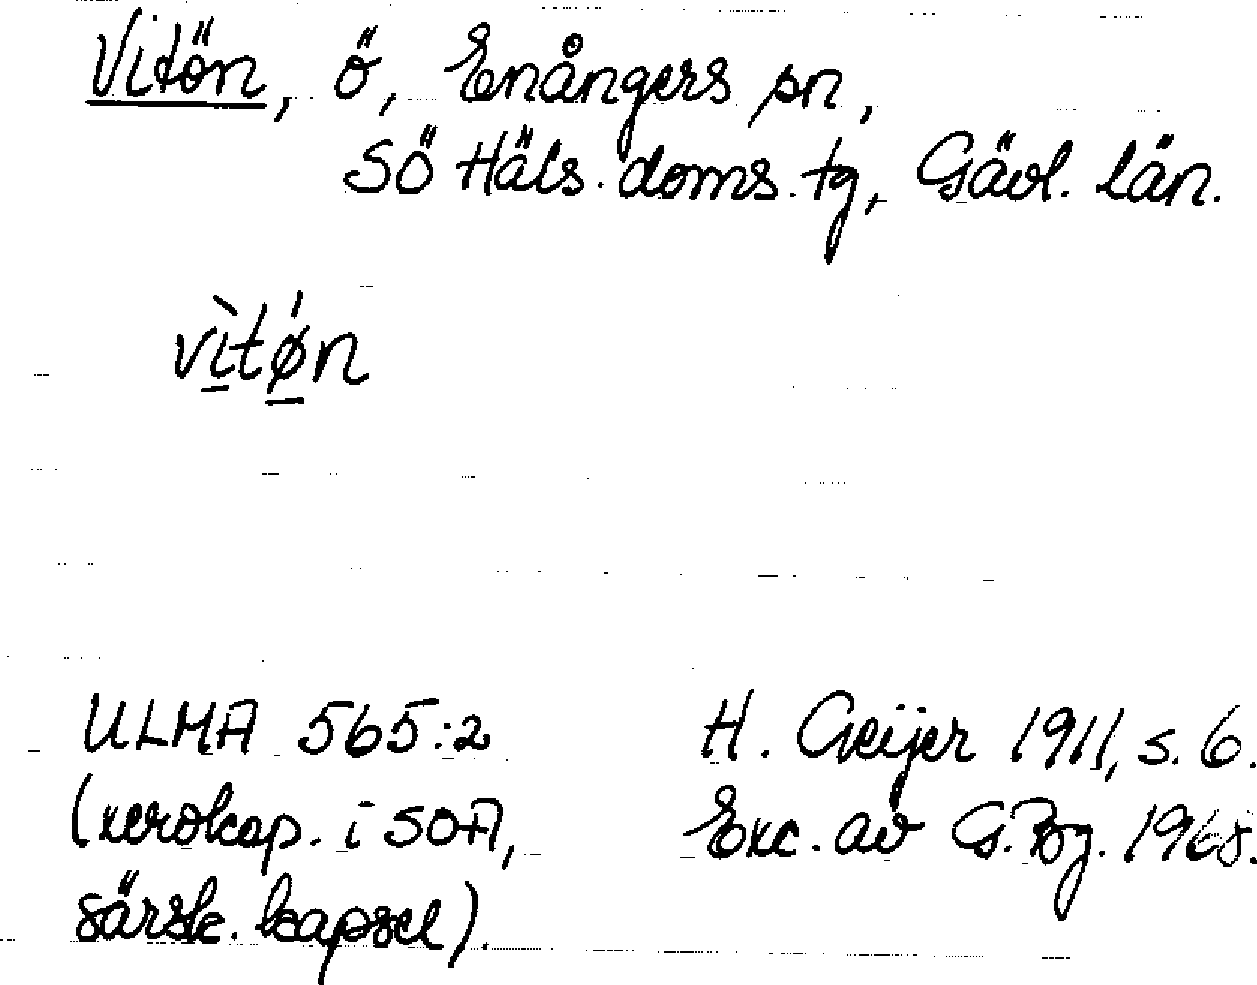 Vitön, ö, Enångers sn,
Sö Häls. doms. tg, Gävl. län.
vì̲tǿ̲n
ULMA 565:2
(xerokop. i SOA,
särsk. kapsel).
H. Geijer 1911, s. 6.
Exc. av G. Bg. 1968.